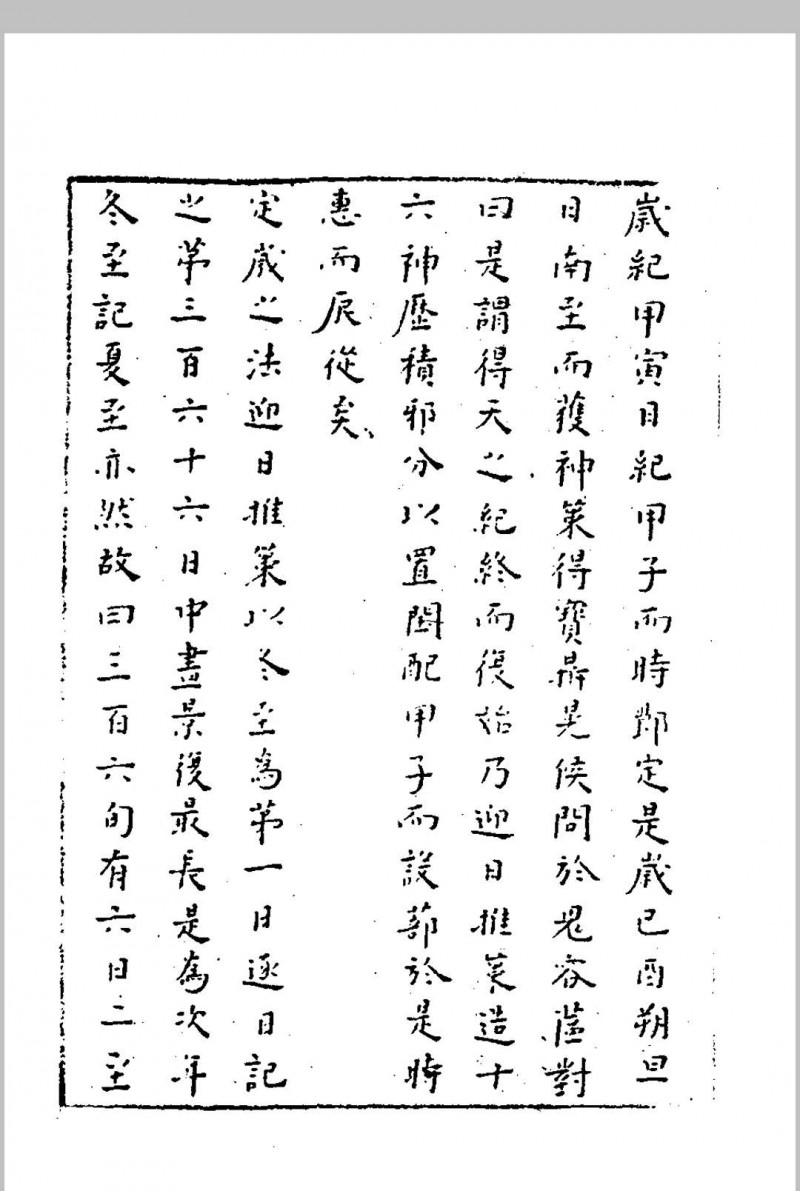 歲紀甲寅日紀甲子而時節定是歲已酉朔旦
日南至而獲神策得寶鼎冕侯問於鬼容蓲對
曰是謂得天之紀終而復始乃迎日推策造十
六神歷積邪分以置閏配甲子而設蔀於是時
惠而辰從矣
定歲之法迎日推策以冬至為第一日逐日記
之第三百六十六日中晝景復最長是為次年
冬至記夏至亦然故曰三百六旬有六日二至